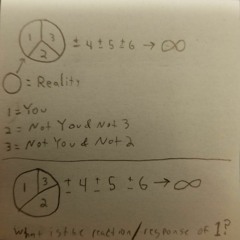 1 3 2 ± 4 ± 5 ± 6 → ∞
= Reality
1 = You
2 = Not You & Not 3
3 = Not You & Not 2
1 3 2 ± 4 ± 5 ± 6 → ∞
What is the reaction/response of 1?